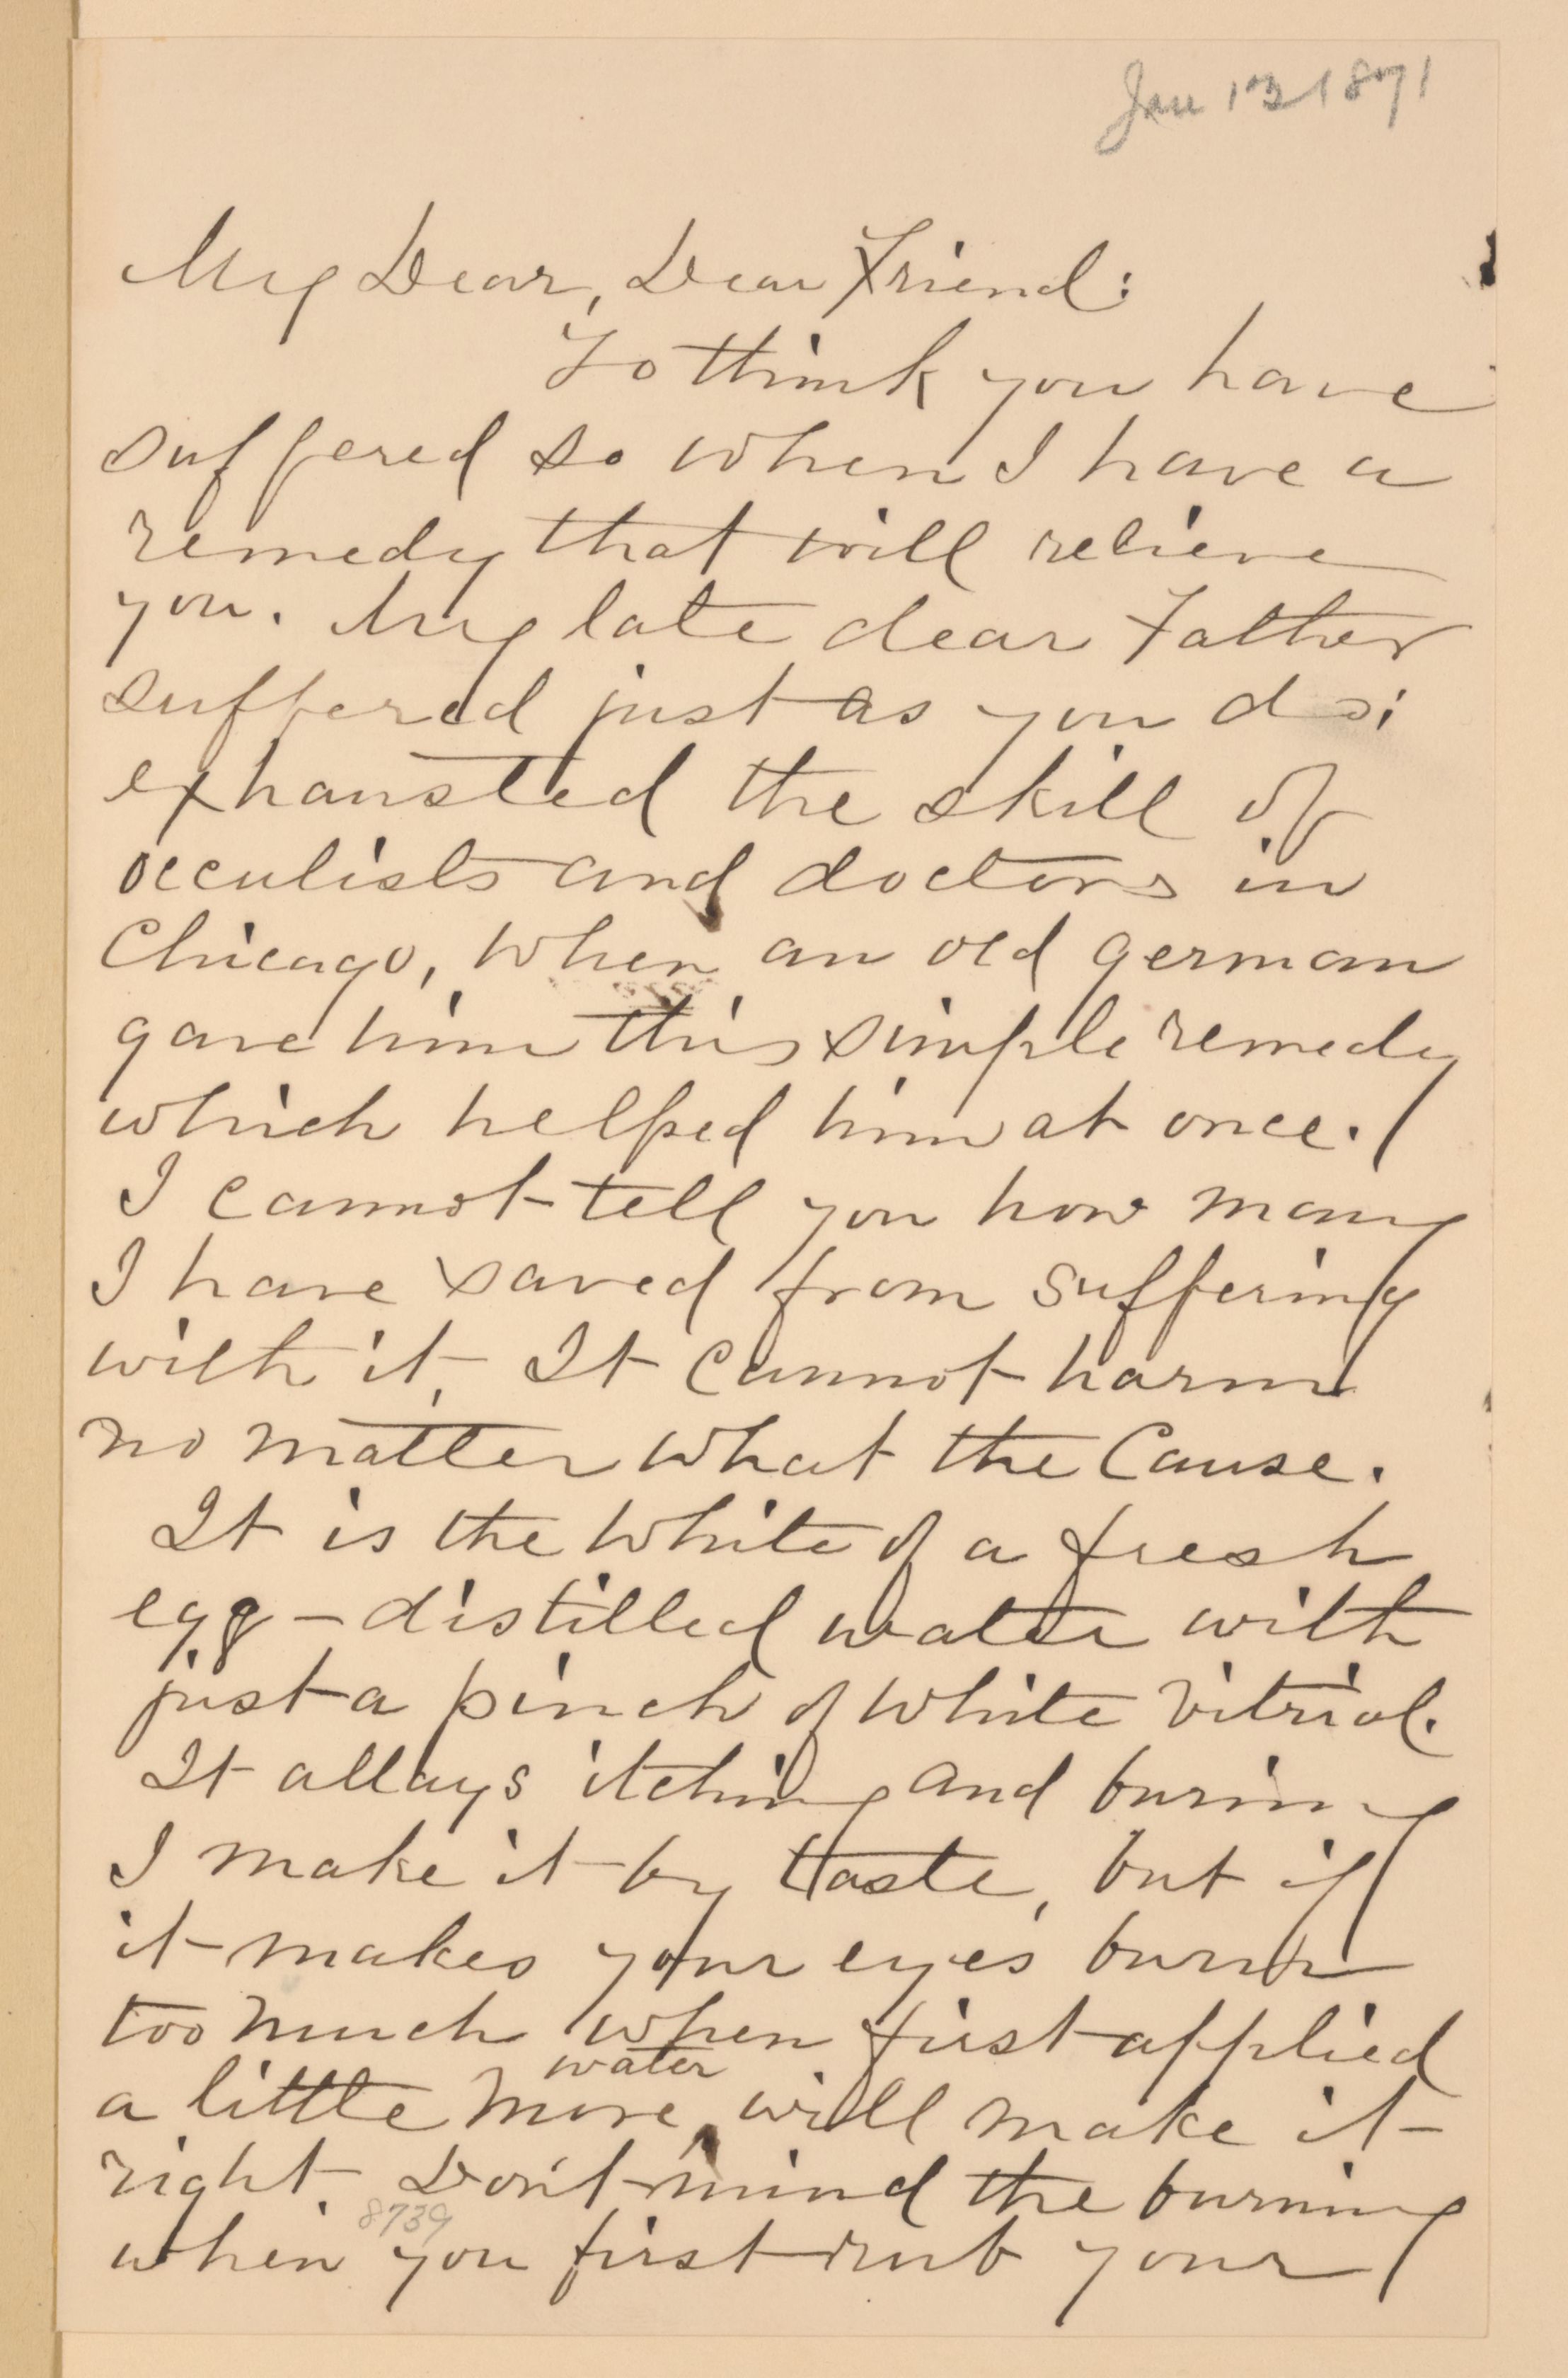 Jan 13 1871
My Dear, Dear Friend:
To think you have
suffered so when I have a
remedy that will relieve
you. My late dear Father
suffered just as you do;
exhausted the skill of
occulists and doctors in
Chicago, when an old german
gave him this simple remedy
which helped him at once.
I cannot tell you how many
I have saved from suffering
with it. It cannot harm
no matter what the Cause.
It is the white of a fresh
egg - distilled water with
just a pinch of white vitriol.
It allays itching and burning
I make it by taste, but if
it makes your eyes burn
too much when first applied
a little more water will make it
right. Don't mind the burning
8739
when you first rub your